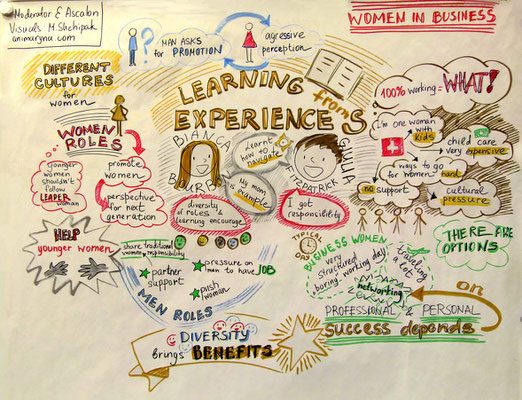 Moderator E Ascabn
Visuals: M. Shchipak
animaryna.com
WOMEN IN BUSINESS
MAN ASKS
for PROMOTION
agressive
perception
DIFFERENT
CULTURES
for
women
LEARNING
from
EXPERIENCES
100% working = WHAT!
I'm one woman
with
kids
child care
very expensive
ways to go
for women hard
no support
cultural
pressure
WOMEN
ROLES
Younger
women
shouldn't
follow
LEADER
woman
promote
women
perspective
for next
generation
BIANCA
BOURO
Learnt
how to
navigate
My mom
is example
GIULIA
FITZPATRICK
diversity
of roles &
learning encourage
I got
responsibility
HELP
younger women
share traditional
women responsibility
partner
support
pressure on
man to have JOB
push
woman
MEN ROLES
TYPICAL
DAY
BUSINESS WOMEN
very
structured
boring working day
traveling
a lot
networking
THERE ARE
OPTIONS
on
PROFESSIONAL & PERSONAL
success depends
DIVERSITY
brings BENEFITS